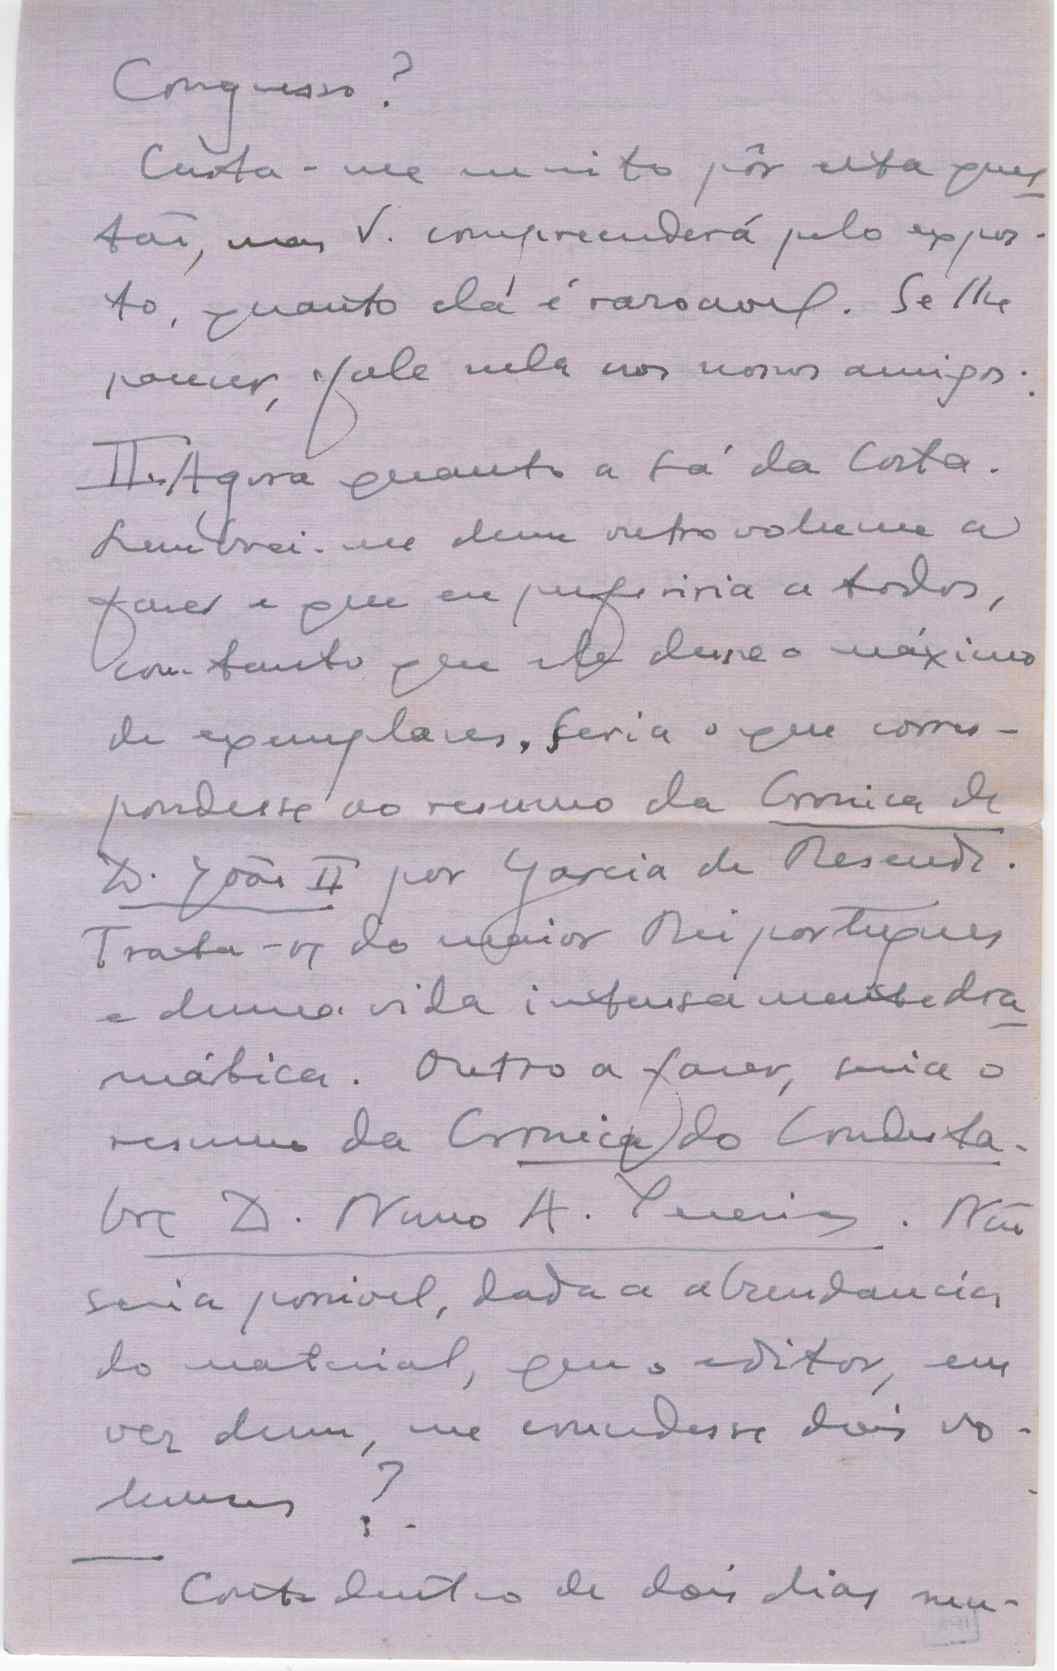 Congresso?
Custa-me muito pôr esta ques-
tão, mas V. compreenderá pelo expos-
to, quanto ela é razoavel. Se lhe
parecer, fale nela aos nossos amigos.
II. Agora quanto a Sá da Costa.
Lembrei-me dum outro volume a
fazer e que eu preferiria a todos,
com tanto que ele desse o máximo
de exemplares. Seria o que corres-
pondesse ao resumo da Cronica de
D. João II por Garcia de Resende.
Trata-se do maior Rei português
e duma vida intensamente dra-
mática. Outro a fazer, seria o
resumo da Cronica do Condesta-
bre D. Nuno A. Pereira. Não
seria possivel, dada a abundancia
do material, que o editor, em
vez dum, me concedesse dois vo-
lumes?
Conto dentro de dois dias